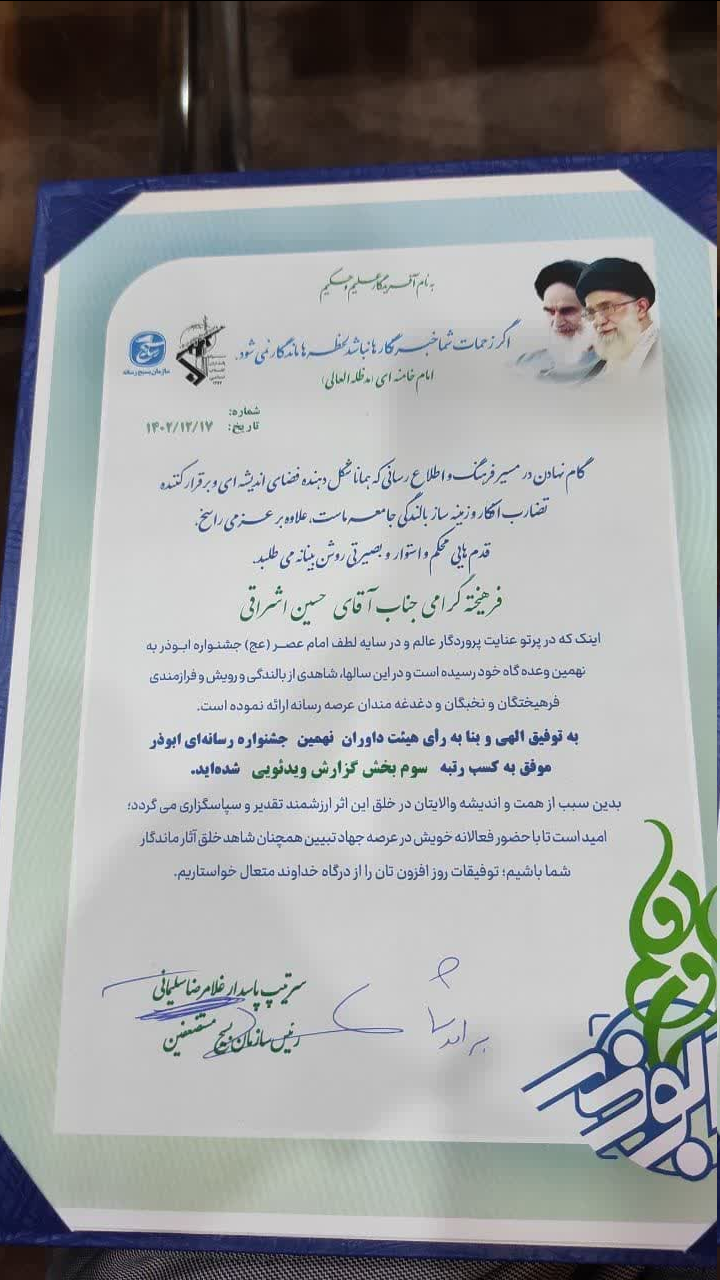 به نام آفریدگار علیم و حکیم
اگر زحمات شما خبرگارها نباشد لحظه‌ها ماندگار نمی‌شود.
امام خامنه ای (مدظله العالی)
سازمان بسیج رسانه
شماره:
تاریخ: ۱۴۰۲/۱۲/۱۷
گام نهادن در مسیر فرهنگ و اطلاع رسانی که همانا شکل دهنده فضای اندیشه ای و برقرار کننده
تضارب افکار و زمینه ساز بالندگی جامعه ماست، علاوه بر عزمی راسخ،
قدم هایی محکم و استوار و بصیرتی روشن بینانه می طلبد.
فرهیخته گرامی جناب آقای حسین اشراقی
اینک که در پرتو عنایت پروردگار عالم و در سایه لطف امام عصر (عج) جشنواره ابوذر به
نهمین وعده گاه خود رسیده است و در این سالها، شاهدی از بالندگی و رویش و فرازمندی
فرهیختگان و نخبگان و دغدغه مندان عرصه رسانه ارائه نموده است.
به توفیق الهی و بنا به رأی هیئت داوران نهمین جشنواره رسانه‌ای ابوذر
موفق به کسب رتبه سوم بخش گزارش ویدئویی شده‌اید.
بدین سبب از همت و اندیشه والایتان در خلق این اثر ارزشمند تقدیر و سپاسگزاری می گردد؛
امید است تا با حضور فعالانه خویش در عرصه جهاد تبیین همچنان شاهد خلق آثار ماندگار
شما باشیم؛ توفیقات روز افزون تان را از درگاه خداوند متعال خواستاریم.
سرتیپ پاسدار غلامرضا سلیمانی
رئیس سازمان بسیج مستضعفین
ابوذر